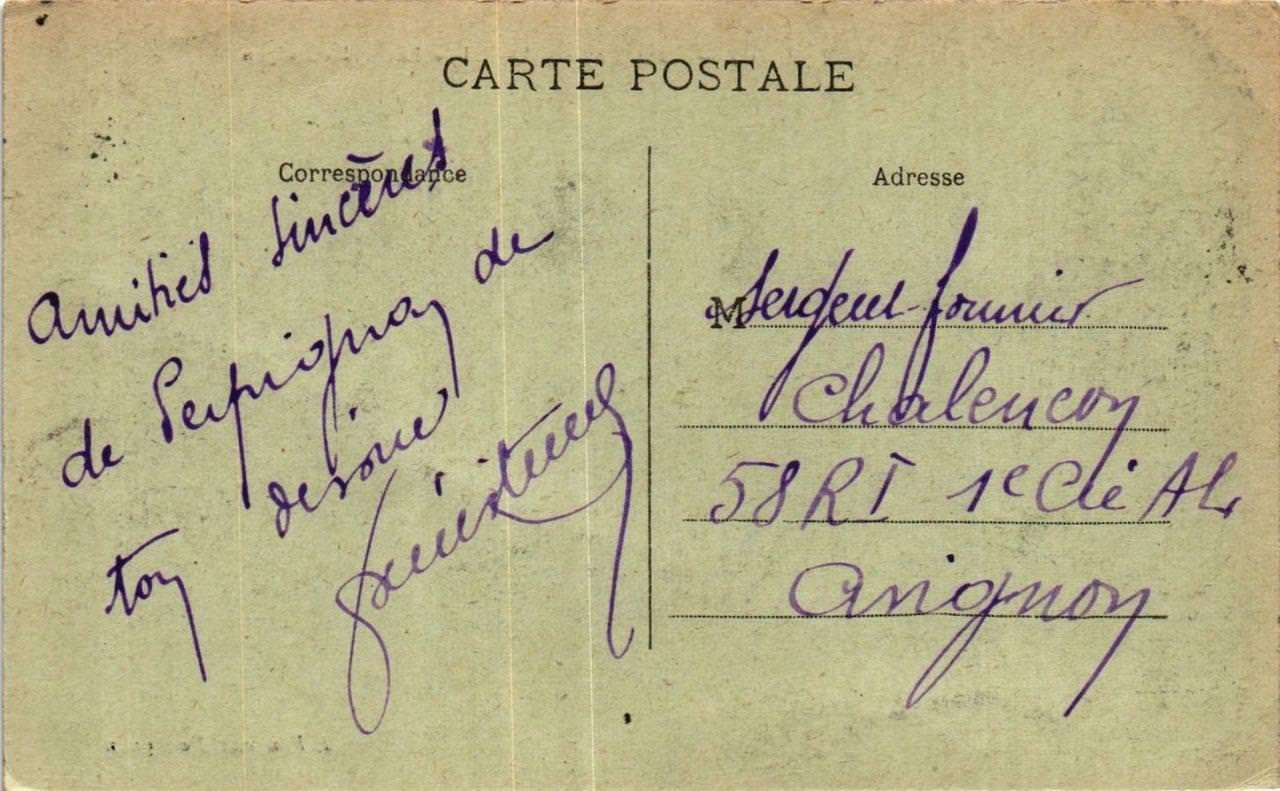 CARTE POSTALE
Correspondance
Amitiés sincères
de Perpignan de
ton
Adresse
M Sergent fournier
Chalencon
58 RI 1e Cie
Avignon